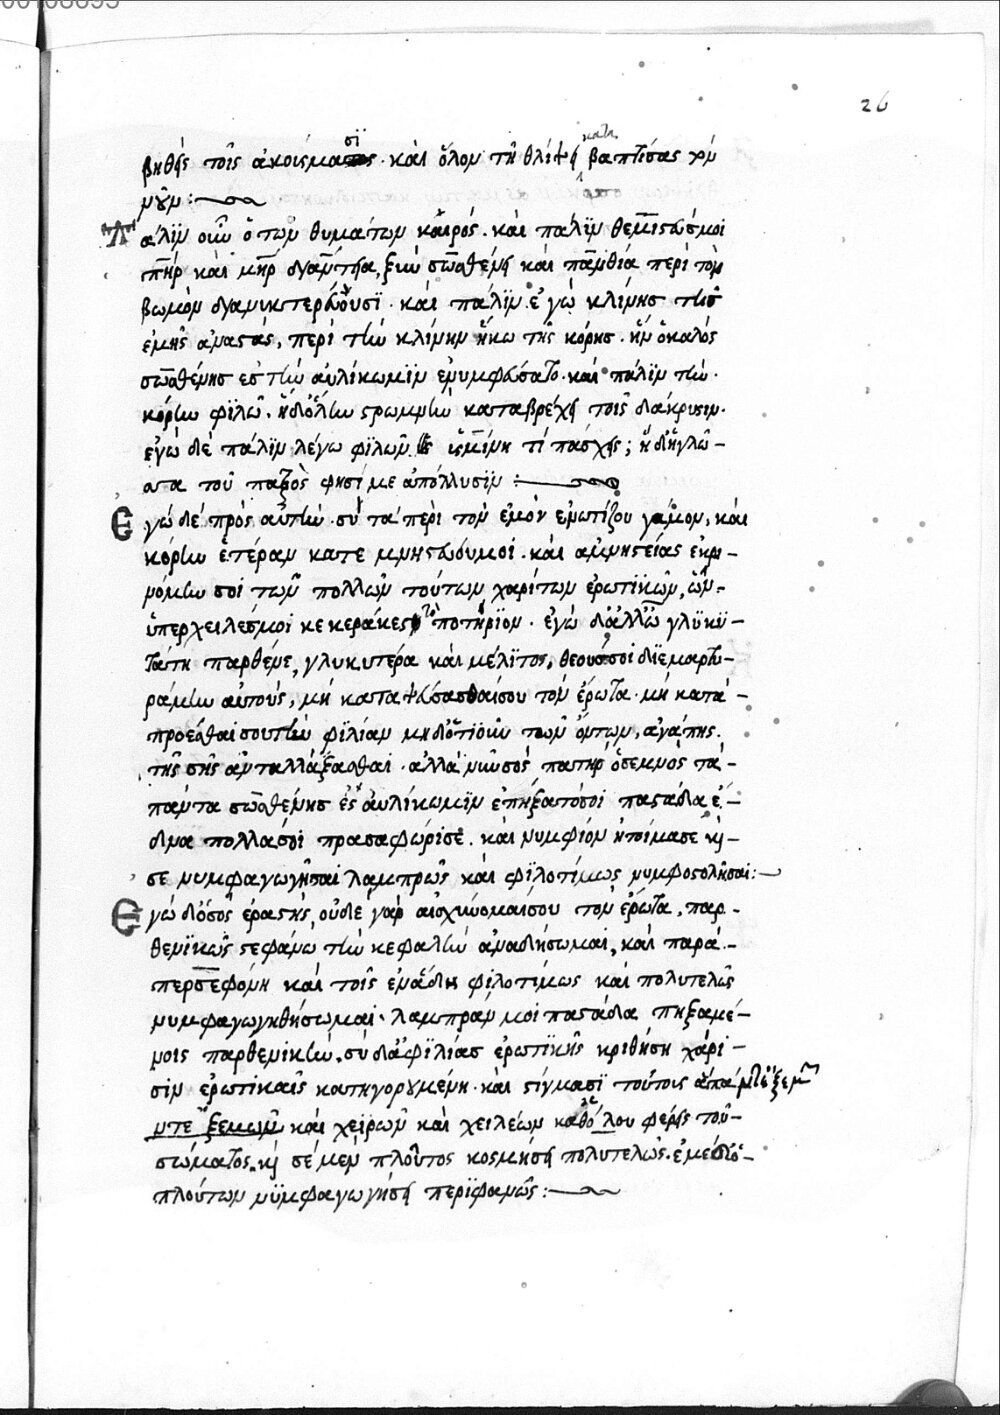 26
βηθῆς τοῖς ἀκούσμασϊ. καὶ ὅλον τῆ θλίψη καταβαπτίσας τὸν
νοῦν:
Πάλϊν οὖν ὁ τῶν θυμάτων καιρός. καὶ πάλϊν θεμιστώ μοι
πὴρ καὶ μὴρ διαντεία, ξὺν σωσθένη καὶ πανθία περὶ τὸν
βωμὸν διανυκτερεύουσϊ. καὶ πάλϊν ἐγὼ κλίνης τῆς
ἐμῆς ἀναστὰς, περὶ τὴν κλίνην ἥκω τῆς κόρης. ἣν ὁ καλὸς
σωσθένης ἐς τὴν αὐλίκωμϊν ἐνυμφεύσατο. καὶ πάλϊν τὴν
κόρην φϊλῶ. ἡ δ' ὅλην στρωμνὴν καταβρέχει τοῖς δάκρυσιν.
ἐγὼ δὲ πάλϊν λέγω φϊλῶν ὑσμίνη τί πάσχεις; ἡ δ' ἡ γλῶ-
σσα τοῦ πατρὸς φησί με ἀπόλλυσϊν:
Ἐγὼ δὲ πρὸς αὐτήν. σὺ τὰ περὶ τὸν ἐμὸν ἐνωτίζου γάμον, καὶ
κόρην ἑτέραν κατεμνηστεύου μοι. καὶ ἀμνηστείας ἐκρι-
νόμην σοι τῶν πολλῶν τούτων χαρίτων ἐρωτϊκῶν, ὧν
ὑπερχειλές μοι κεκεράκεις τὸ ποτήρϊον. ἐγὼ δ' ἀλλ' ὦ γλϋκϋ-
τάτη παρθένε, γλυκυτέρα καὶ μέλϊτος, θεούς σοι δϊεμαρτυ-
ράμην αὐτούς, μὴ καταψεύσασθαί σου τὸν ἔρωτα. μὴ κατα-
προέσθαι σου τὴν φϊλίαν μηδ' ὁτϊοῦν τῶν ὄντων, ἀγάπης
τῆς σῆς ἀνταλλάξασθαι. ἀλλὰ νῦν σὸς πατὴρ ὁ σεμνὸς τὰ
πάντα σωσθένης ἐς αὐλίκωμϊν ἐπήξατό σοι παστάδα ἕ-
δνα πολλά σοι προσαφώρισε. καὶ νυμφίον ἡτοίμασε καὶ
σε νυμφαγωγῆσαι λαμπρῶς καὶ φϊλοτίμως νυμφοστολῆσαι:
Ἐγὼ δ' ὁ σὸς ἐραστής, οὐδὲ γὰρ αἰσχύνομαί σου τὸν ἔρωτα, παρ-
θενϊκῶς στεφάνω τὴν κεφαλὴν ἀναδήσωμαι, καὶ παρὰ
περσεφόνη καὶ τοῖς ἐν ἅδη φϊλοτίμως καὶ πολυτελῶς
νυμφαγωγηθήσωμαι. λαμπράν μοι παστάδα πηξαμέ-
νοις παρθενικήν. σὺ δ' ἀφϊλίας ἐρωτϊκῆς κριθήση χάρι-
σιν ἐρωτικαῖς κατηγορυμένη. καὶ στίγμασϊ τούτοις
ξεμῶν καὶ χεϊρῶν καὶ χειλέων καθόλου φέρεις τοῦ
στόματος. καὶ σὲ μὲν πλοῦτος κοσμήσει πολυτελῶς. ἐμὲ δ' ὁ
πλούτων νϋμφαγωγήσει περϊφανῶς: